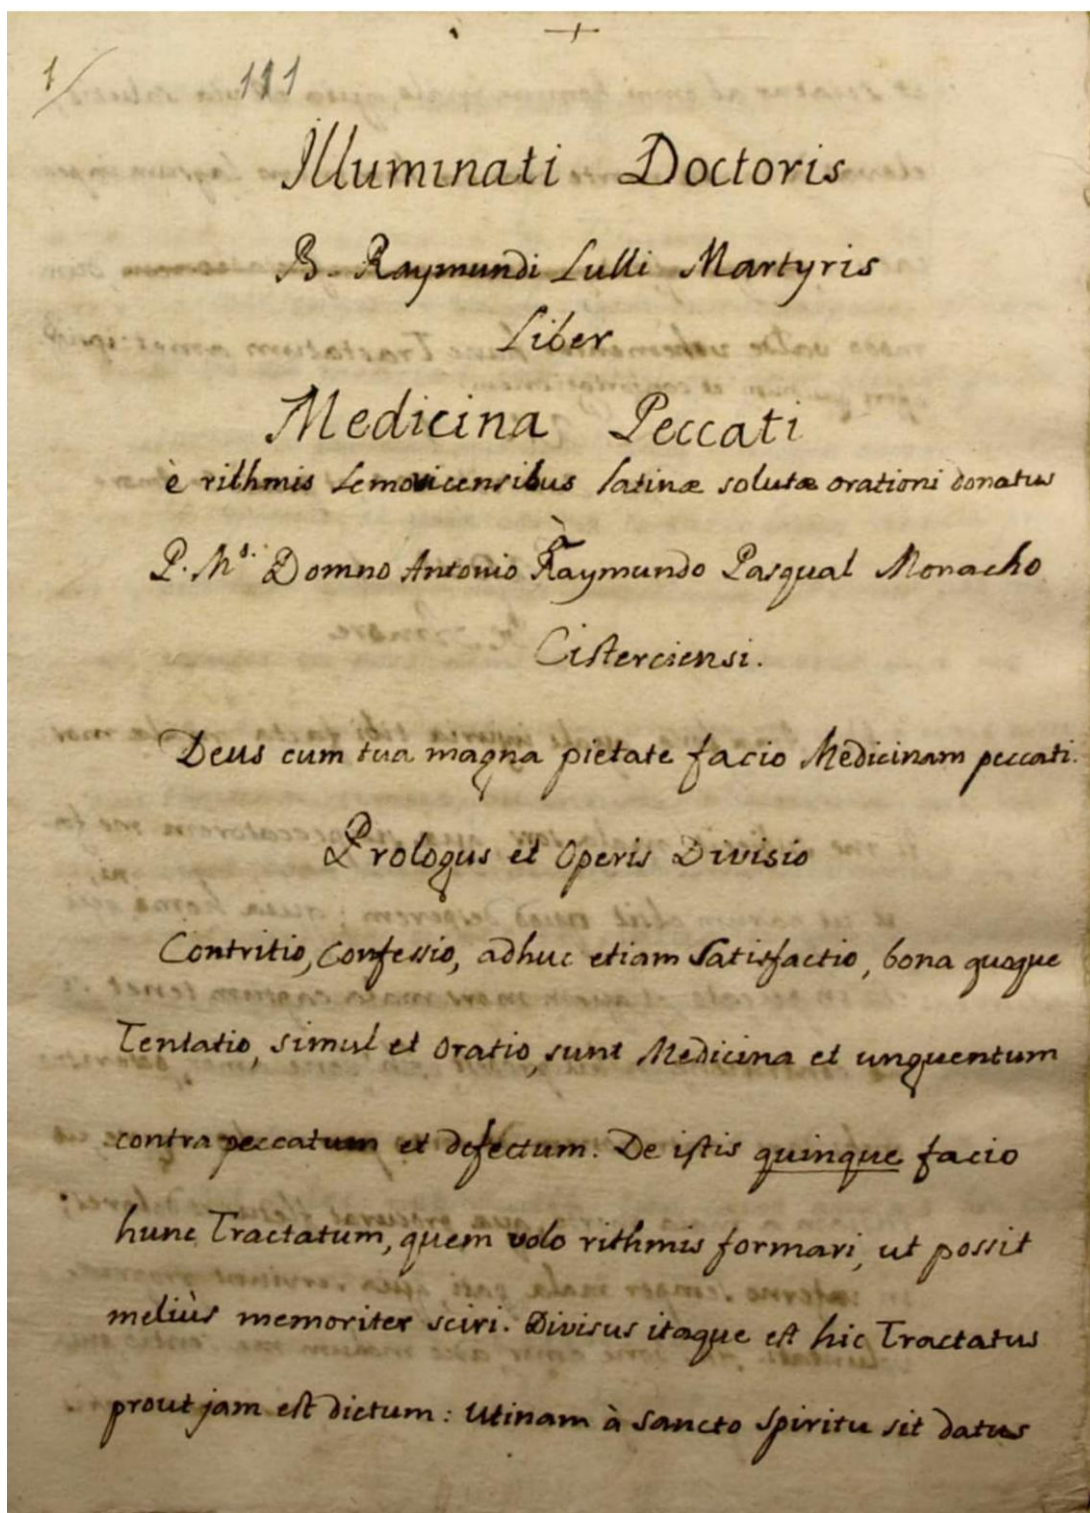 1/ 111
Illuminati Doctoris
B. Raymundi Lulli Martyris
Liber
Medicina Peccati
è rithmis Lemovicensibus latinæ solutæ orationi donatus
à
P. Mº. Domno Antonio Raymundo Pasqual Monacho
Cisterciensi.
Deus cum tua magna pietate facio Medicinam peccati.
Prologus et Operis Divisio
Contritio, Confessio, adhuc etiam Satisfactio, bona quoque
Tentatio, simul et Oratio, sunt Medicina et unguentum
contra peccatum et defectum. De istis quinque facio
hunc Tractatum, quem volo rithmis formari, ut possit
meliùs memoriter sciri. Divisus itaque est hic Tractatus
prout jam est dictum: Utinam à Sancto Spiritu sit datus